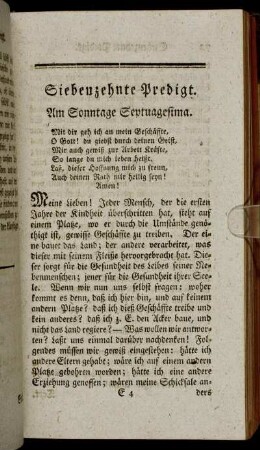 Siebenzehnte Predigt.
Am Sonntage Septuagesima.
Mit dir geh ich an mein Geschäffte,
O Gott! du giebst durch deinen Geist,
Mir auch gewiß zur Arbeit Kräfte,
So lange du mich leben heißt,
Laß, dieser Hoffnung mich zu freun,
Auch deinen Rath mir heilig seyn!
Amen!
Meine Lieben! Jeder Mensch, der die ersten
Jahre der Kindheit überschritten hat, steht auf
einem Platze, wo er durch die Umstände genö-
thigt ist, gewisse Geschäffte zu treiben. Der ei-
ne bauet das Land; der andere verarbeitet, was
dieser mit seinem Fleiße hervorgebracht hat. Die-
ser sorgt für die Gesundheit des Leibes seiner Ne-
benmenschen; jener für die Gesundheit ihrer See-
le. Wenn wir nun uns selbst fragen: woher
kommt es denn, daß ich hier bin, und auf keinem
andern Platze? daß ich dieß Geschäffte treibe und
kein anderes? daß ich z. E. den Acker baue, und
nicht das Land regiere? — Was wollen wir antwor-
ten? Laßt uns einmal darüber nachdenken! Fol-
gendes müssen wir gewiß eingestehen: hätte ich
andere Eltern gehabt; wäre ich auf einem andern
Platze gebohren worden; hätte ich eine andere
Erziehung genossen; wären meine Schicksale an-
E 4 ders